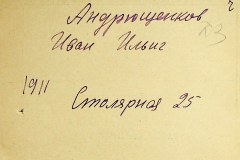 Андрющенков
Иван Ильич
1911 Столярная 25